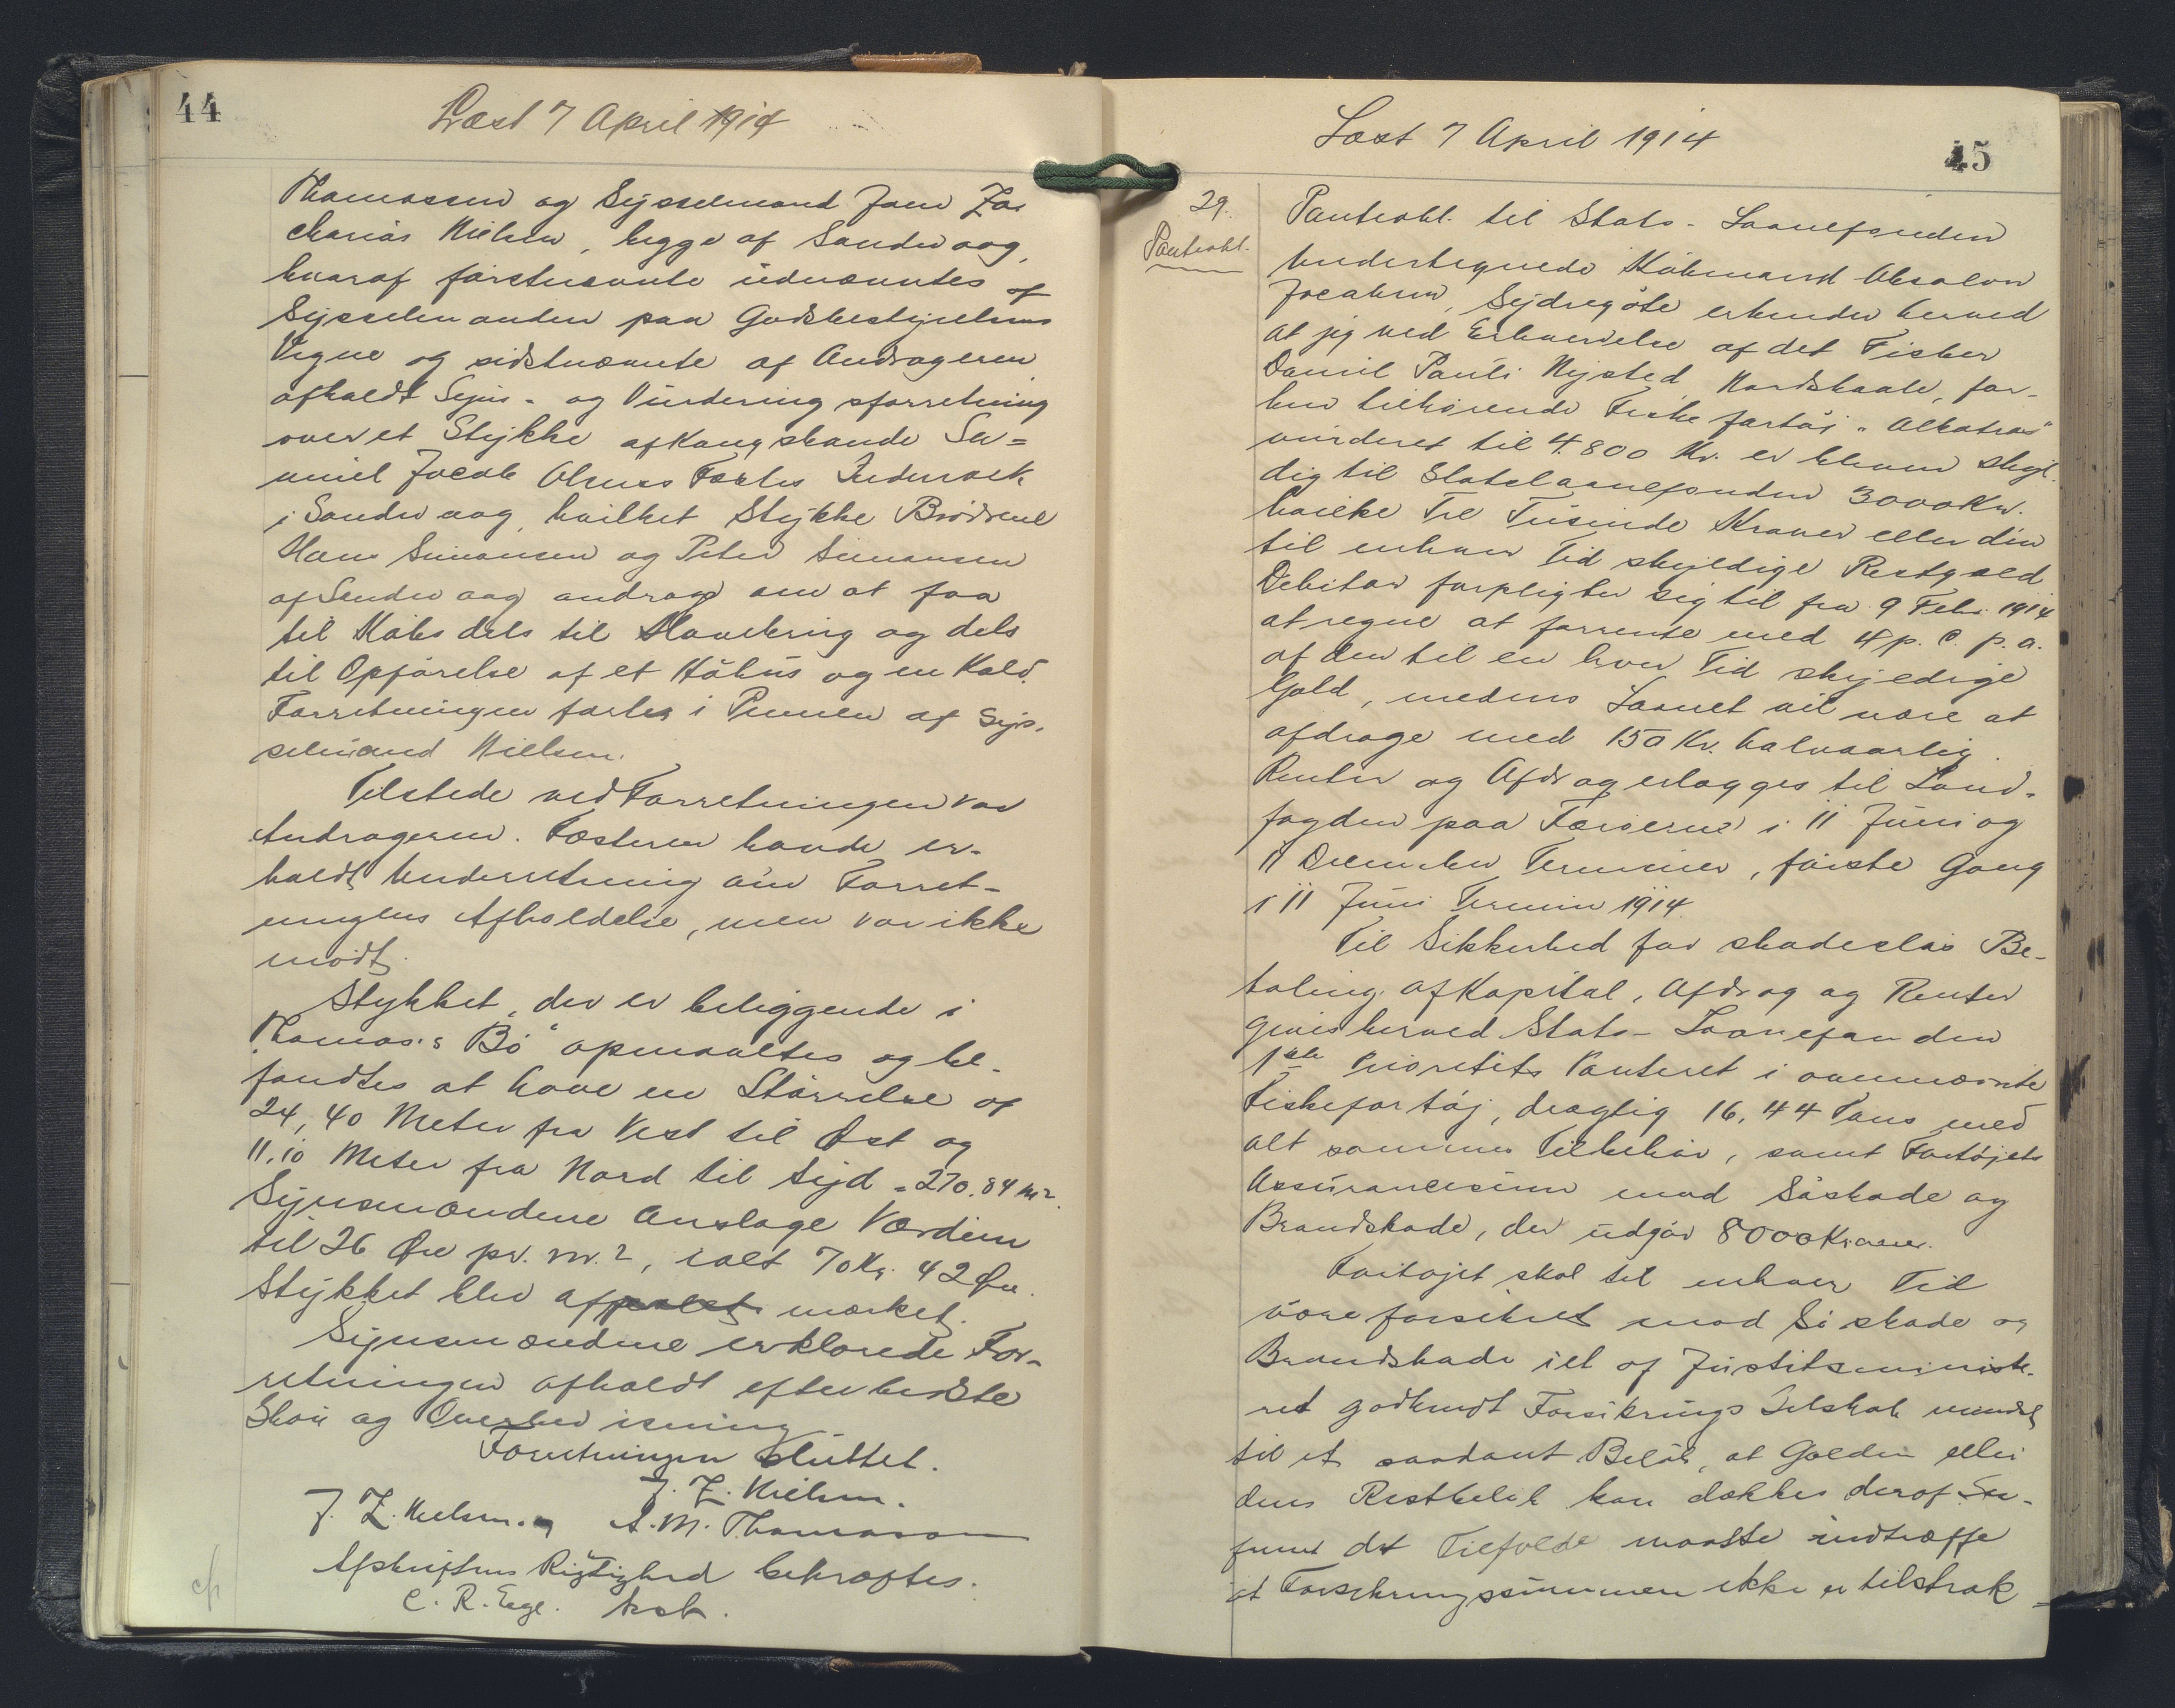 44
Læst 7 April 1914
Thomassen og Sysselmand Joen Za-
charias Nielsen, begge af Sandevaag,
hvoraf förstnævnte udnævntes af
Sysselmanden paa Godsbestyrelsens
Vegne og sidstnævnte af Andrageren
afholdt Syns- og Vurderingsforretning
over et Stykke af Kongsbonde Sa-
muel Jacob Fæste Indmark
i Sandevaag, hvilket Stykke Brödrene
Hans Simonsen og Peter Simonsen
af Sandevaag androg om at faa
til Köbs dels til Havebrug og dels
til Opförelse af et Höhus og en Kald.
Forretningen förtes i Pennen af Sys-
selmand Nielsen.
Tilstede ved Forretningen var
Andrageren. Fæsteren havde er-
holdt Underretning om Forret-
ningens Afholdelse, men var ikke
mödt.
Stykket, der er beliggende i
"Thomas's Bö" opmaaltes og be-
fandtes at have en Störrelse af
24,40 Meter fra Vest til Øst og
11.10 Meter fra Nord til Syd = 270.84 m².
Synsmændene Anslage Værdien
til 26 Øre pr. m.², ialt 70 Kr. 42 Øre.
Stykket blev afpælet mærket.
Synsmændene erklærede For-
retningen afholdt efter bedste
Skön og Overbevisning
Forretningen sluttet.
J. Z. Nielsen.
J. Z. Nielsen. A. M. Thomassen
Afskriftens Rigtighed bekræftes.
C. R. Ege. kst.
Læst 7 April 1914
45
29.
Panteobl.
Panteobl. til Stats-Laanefonden
Undertegnede Köbmand Absalon
Jocabsen, Sydregöte erkender herved
at jeg ved Erhvervelse af det Fisker
Daniel Pauli Nysted, Nordskaale, for-
hen tilhörende Fiskefartöj "Albatros"
vurderet til 4.800 Kr. er bleven skyl-
dig til Statslaanefonden 3000 Kr.
hvilke Tre Tusinde Kroner eller den
til enhver Tid skyldige Restgæld
Debitor forpligter sig til fra 9 Febr. 1914
at regne at forrente med 4 p. C. p. a.
af den til en hver Tid skyldige
Gæld, medens Laanet vil være at
afdrage med 150 Kr. halvaarlig
Renter og Afdrag erlægges til Land-
fogden paa Færöerne i 11 Juni og
11 December Terminer, förste Gang
i 11 Juni Termin 1914.
Til Sikkerhed for skadeslös Be-
taling af Kapital, Afdrag og Renter
gives herved Stats-Laanefonden
1ste Prioritets Panteret i ovennævnte
Fiskefartöj, drægtig 16,44 Tons med
alt sammes Tilbehör, samt Fartöjets
Assurancesum mod Söskade og
Brandskade, der udgör 8000 Kroner.
Fartöjet skal til enhver Tid
være forsikret mod Söskade og
Brandskade i et af Justitsministe-
ret godkendt Forsikrings Selskab mindst
til et saadant Belöb, at Gælden eller
dens Restbelöb kan dækkes deraf. Saa-
fremt det Tilfælde maatte indtræffe
at Forsikringssummen ikke er tilstræk-